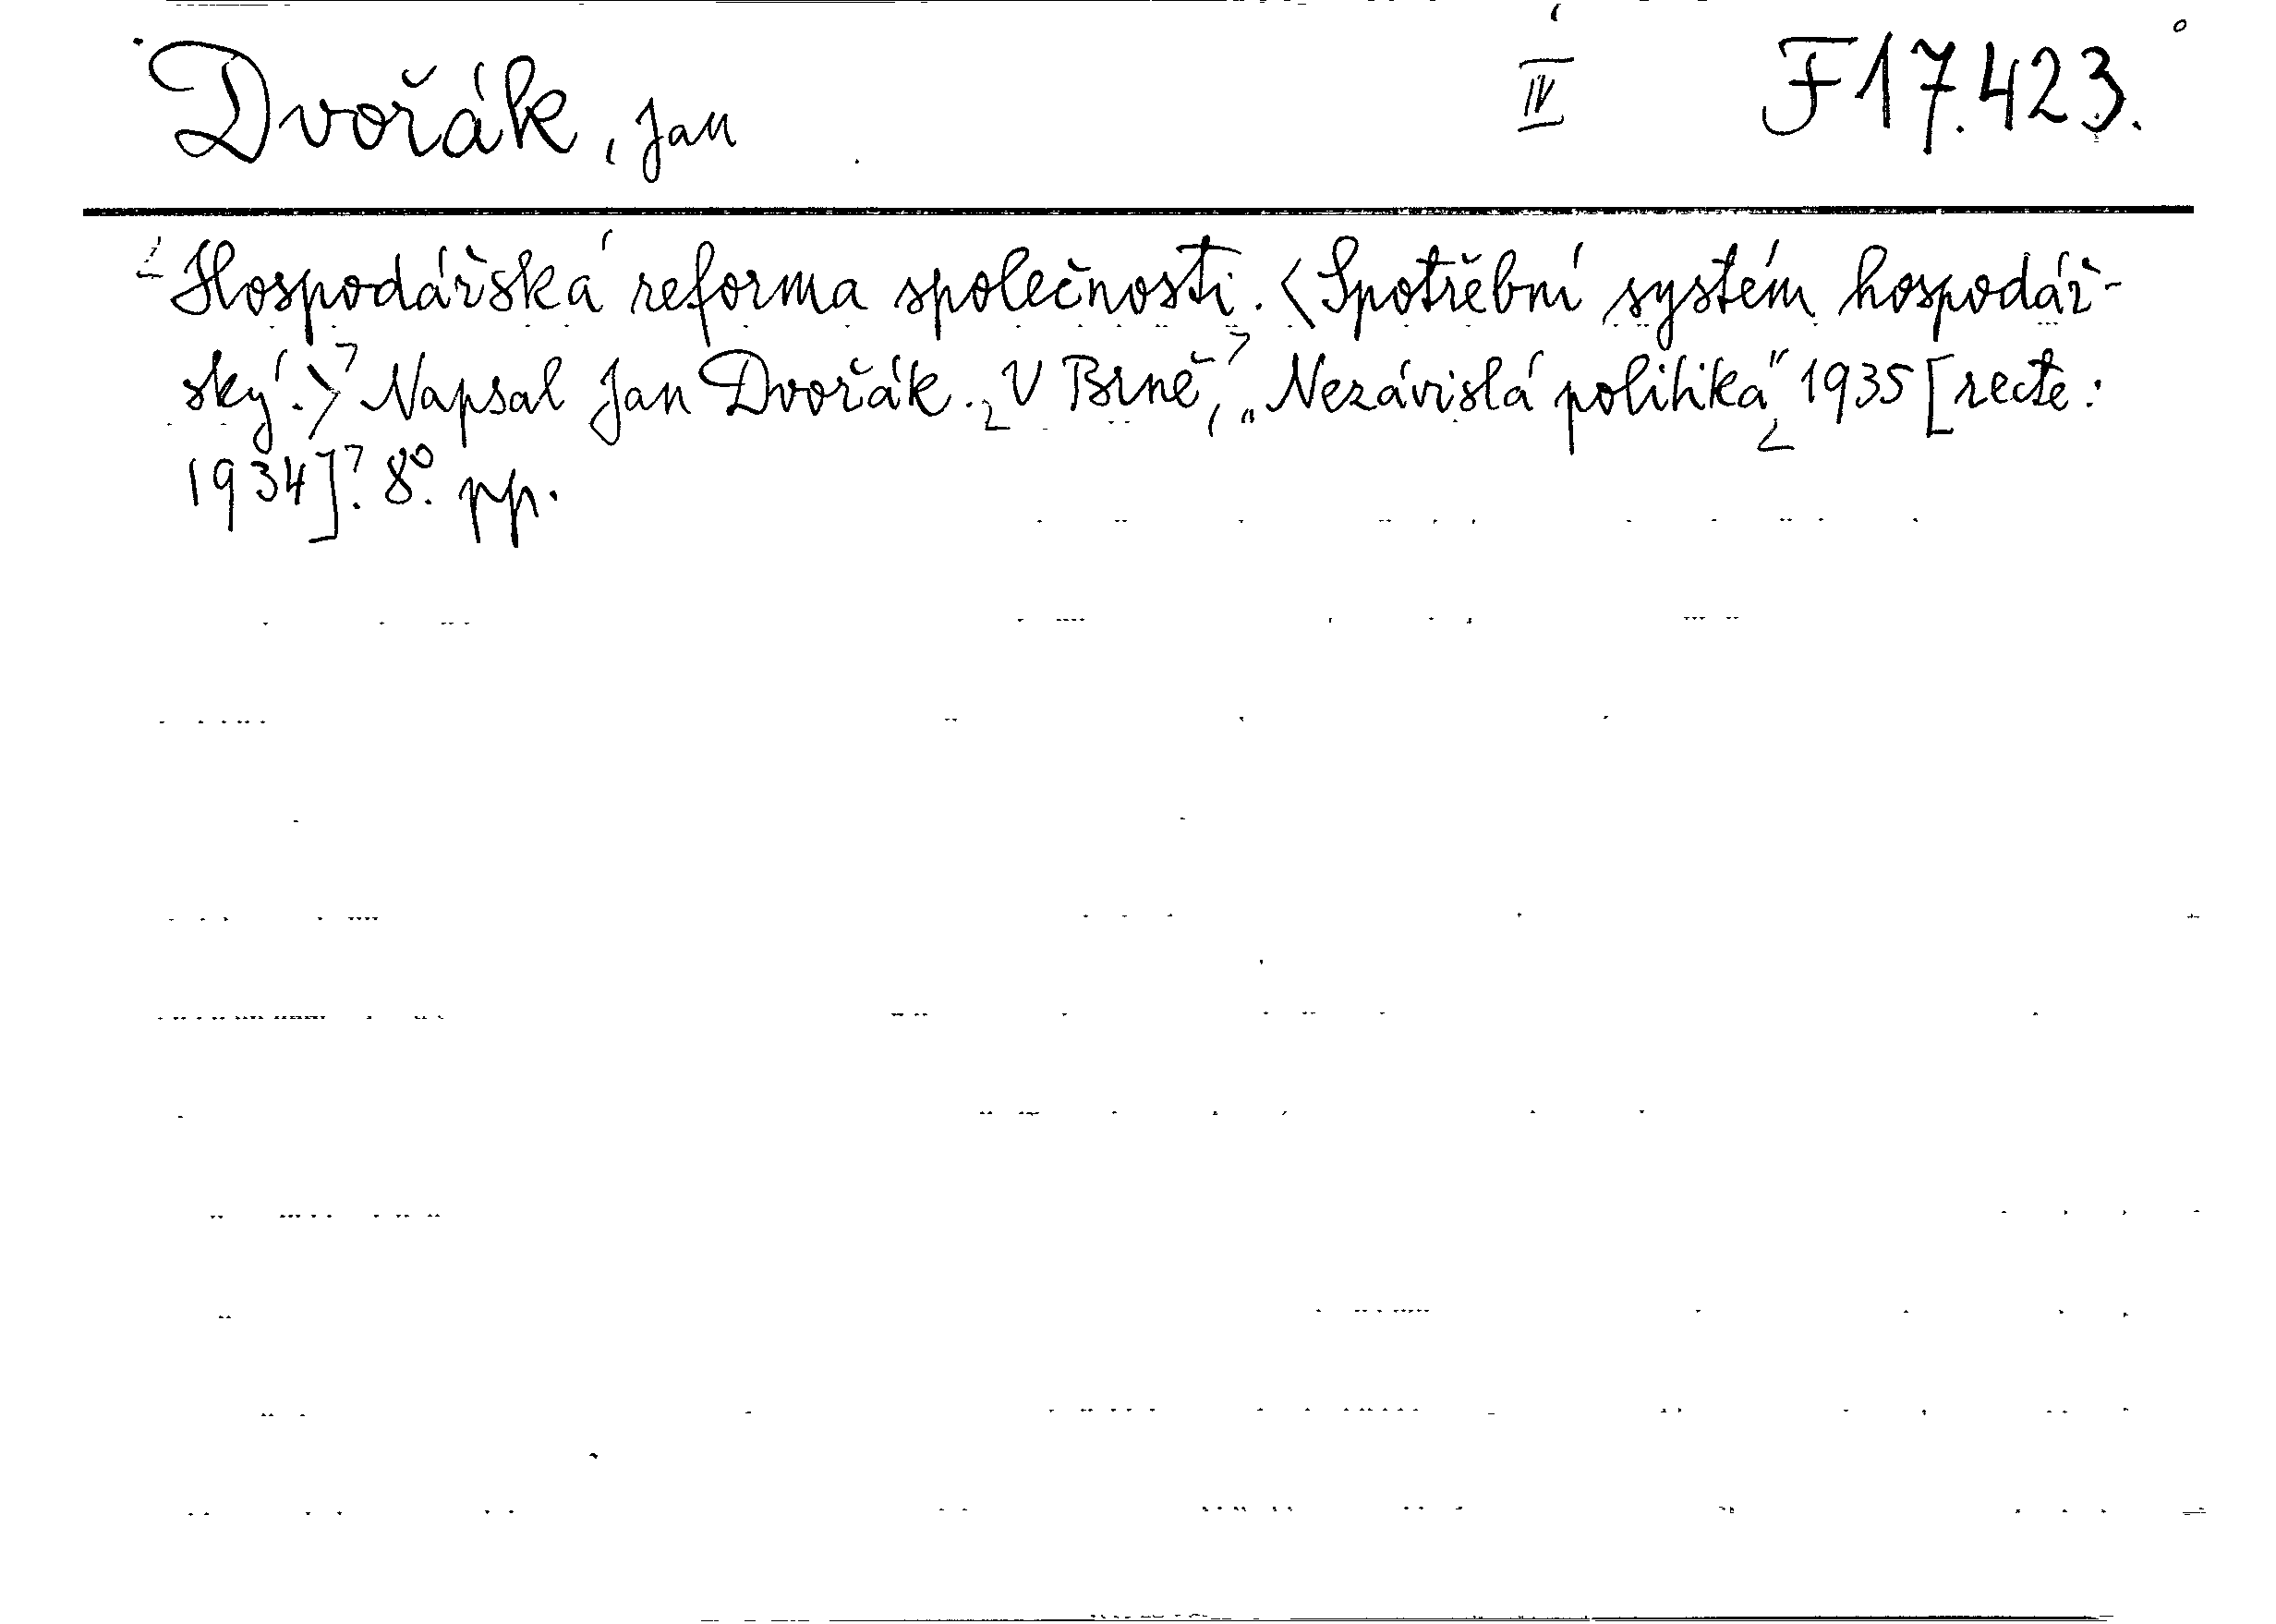 Dvořák, Jan IV F 17.423.
Hospodářská reforma společnosti. <Spotřební systém hospodář-
ský.> Napsal Jan Dvořák. V Brně, „Nezávislá politika" 1935 [recte:
1934]. 8°. pp.